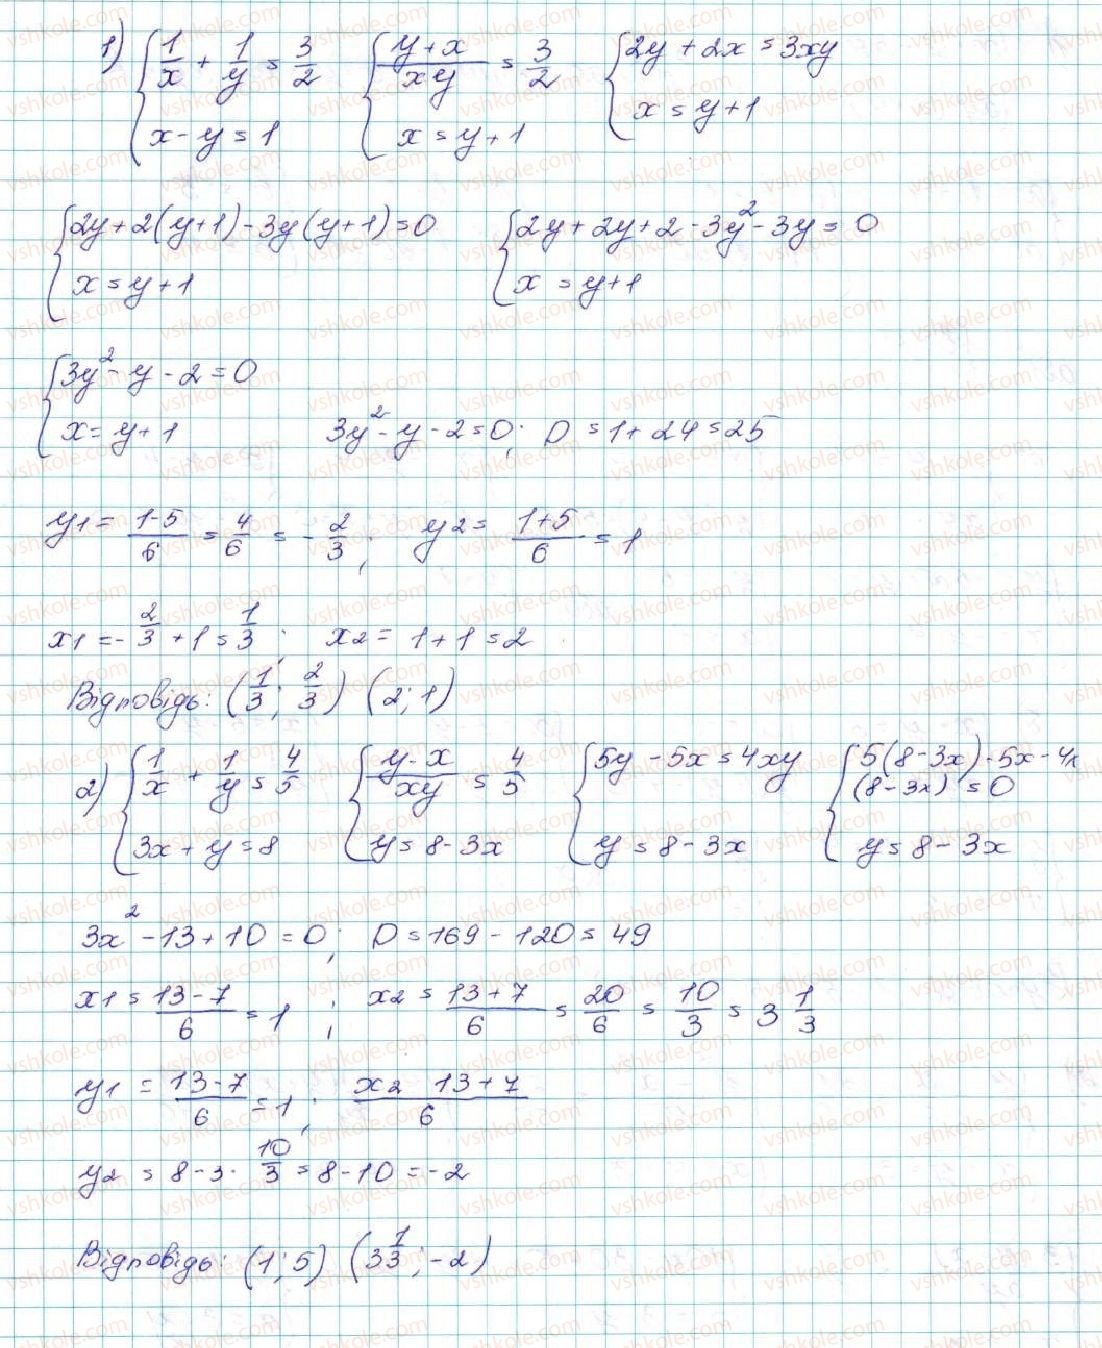 1) { 1/x + 1/y = 3/2   { (y+x)/(xy) = 3/2   { 2y + 2x = 3xy
x - y = 1   x = y + 1   x = y + 1
{ 2y + 2(y+1) - 3y(y+1) = 0   { 2y + 2y + 2 - 3y² - 3y = 0
x = y + 1   x = y + 1
{ 3y² - y - 2 = 0
x = y + 1   3y² - y - 2 = 0; D = 1 + 24 = 25
y1 = (1-5)/6 = 4/6 = - 2/3; y2 = (1+5)/6 = 1
x1 = - 2/3 + 1 = 1/3; x2 = 1 + 1 = 2
Відповідь: (1/3; 2/3) (2; 1)
2) { 1/x + 1/y = 4/5   { (y-x)/(xy) = 4/5   { 5y - 5x = 4xy   { 5(8-3x) - 5x - 4x
(8-3x) = 0
3x + y = 8   y = 8 - 3x   y = 8 - 3x   y = 8 - 3x
3x² - 13 + 10 = 0; D = 169 - 120 = 49
x1 = (13-7)/6 = 1; x2 = (13+7)/6 = 20/6 = 10/3 = 3 1/3
y1 = (13-7)/6 = 1; (x2 13+7)/6
y2 = 8 - 3 · 10/3 = 8 - 10 = -2
Відповідь: (1; 5) (3 1/3; -2)